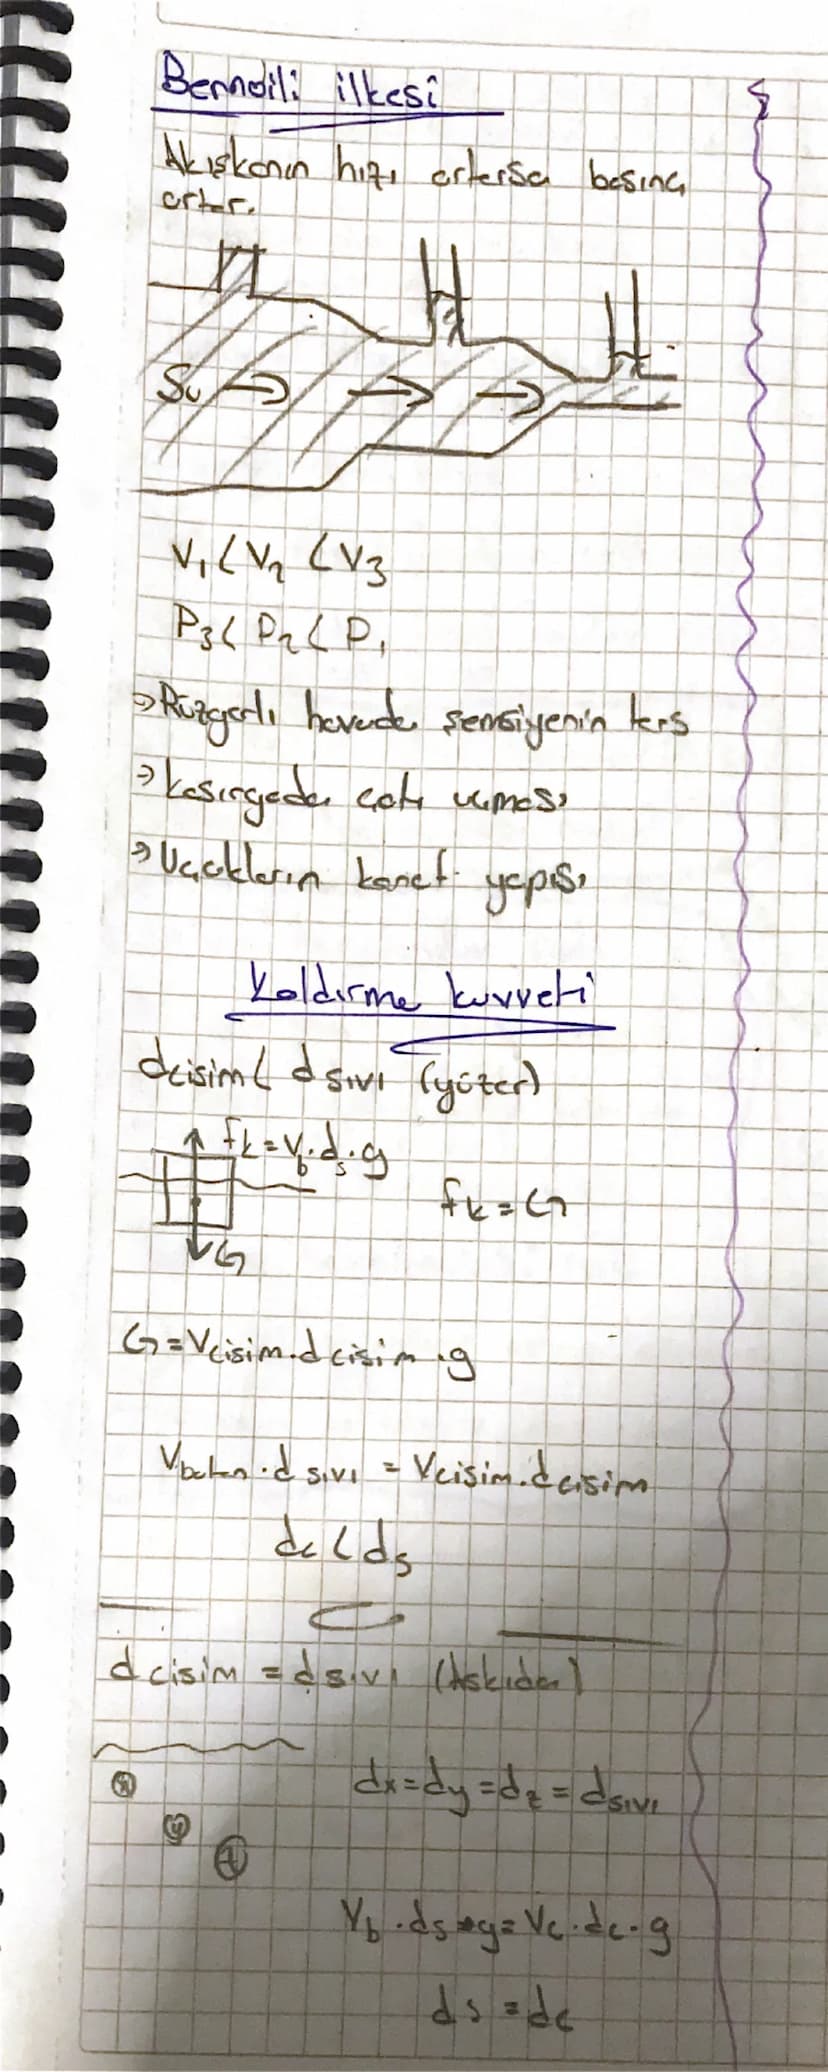 Bernoili ilkesi
Akışkanın hızı artarsa basınç
artar.
Su
V₁ < V₂ < V3
P3 < P2 < P₁
→ Rüzgarlı havada şemsiyenin ters
→ Kasırgada çatı uçması
→ Uçakların kanat yapısı
Kaldırma kuvveti
dcisim < dsıvı (yüzer)
fk = Vb.ds.g
fk = G
G
G = Vcisim.dcisim.g
Vbatan.dsıvı = Vcisim.dcisim
dc < ds
dcisim = dsıvı (Askıda)
dx = dy = dz = dsıvı
x
y
z
Vb.ds.g = Vc.dc.g
ds = dc